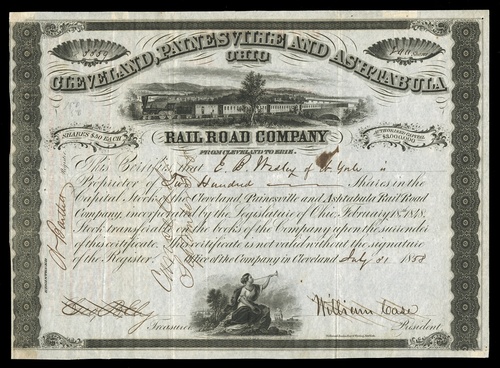 CLEVELAND, PAINESVILLE AND ASHTABULA
OHIO
SHARES $50 EACH
RAIL ROAD COMPANY
FROM CLEVELAND TO ERIE.
This Certifies that E. B. Wesley of N. York
Proprietor of Two Hundred Shares in the
Capital Stock of the Cleveland, Painesville and Ashtabula Rail Road
Company, incorporated by the Legislature of Ohio, February 18th 1848.
Stock transferable on the books of the Company upon the surrender
of this certificate. This certificate is not valid without the signature
of the Register. Office of the Company in Cleveland July 21 1853
William Case
Treasurer
President
Register